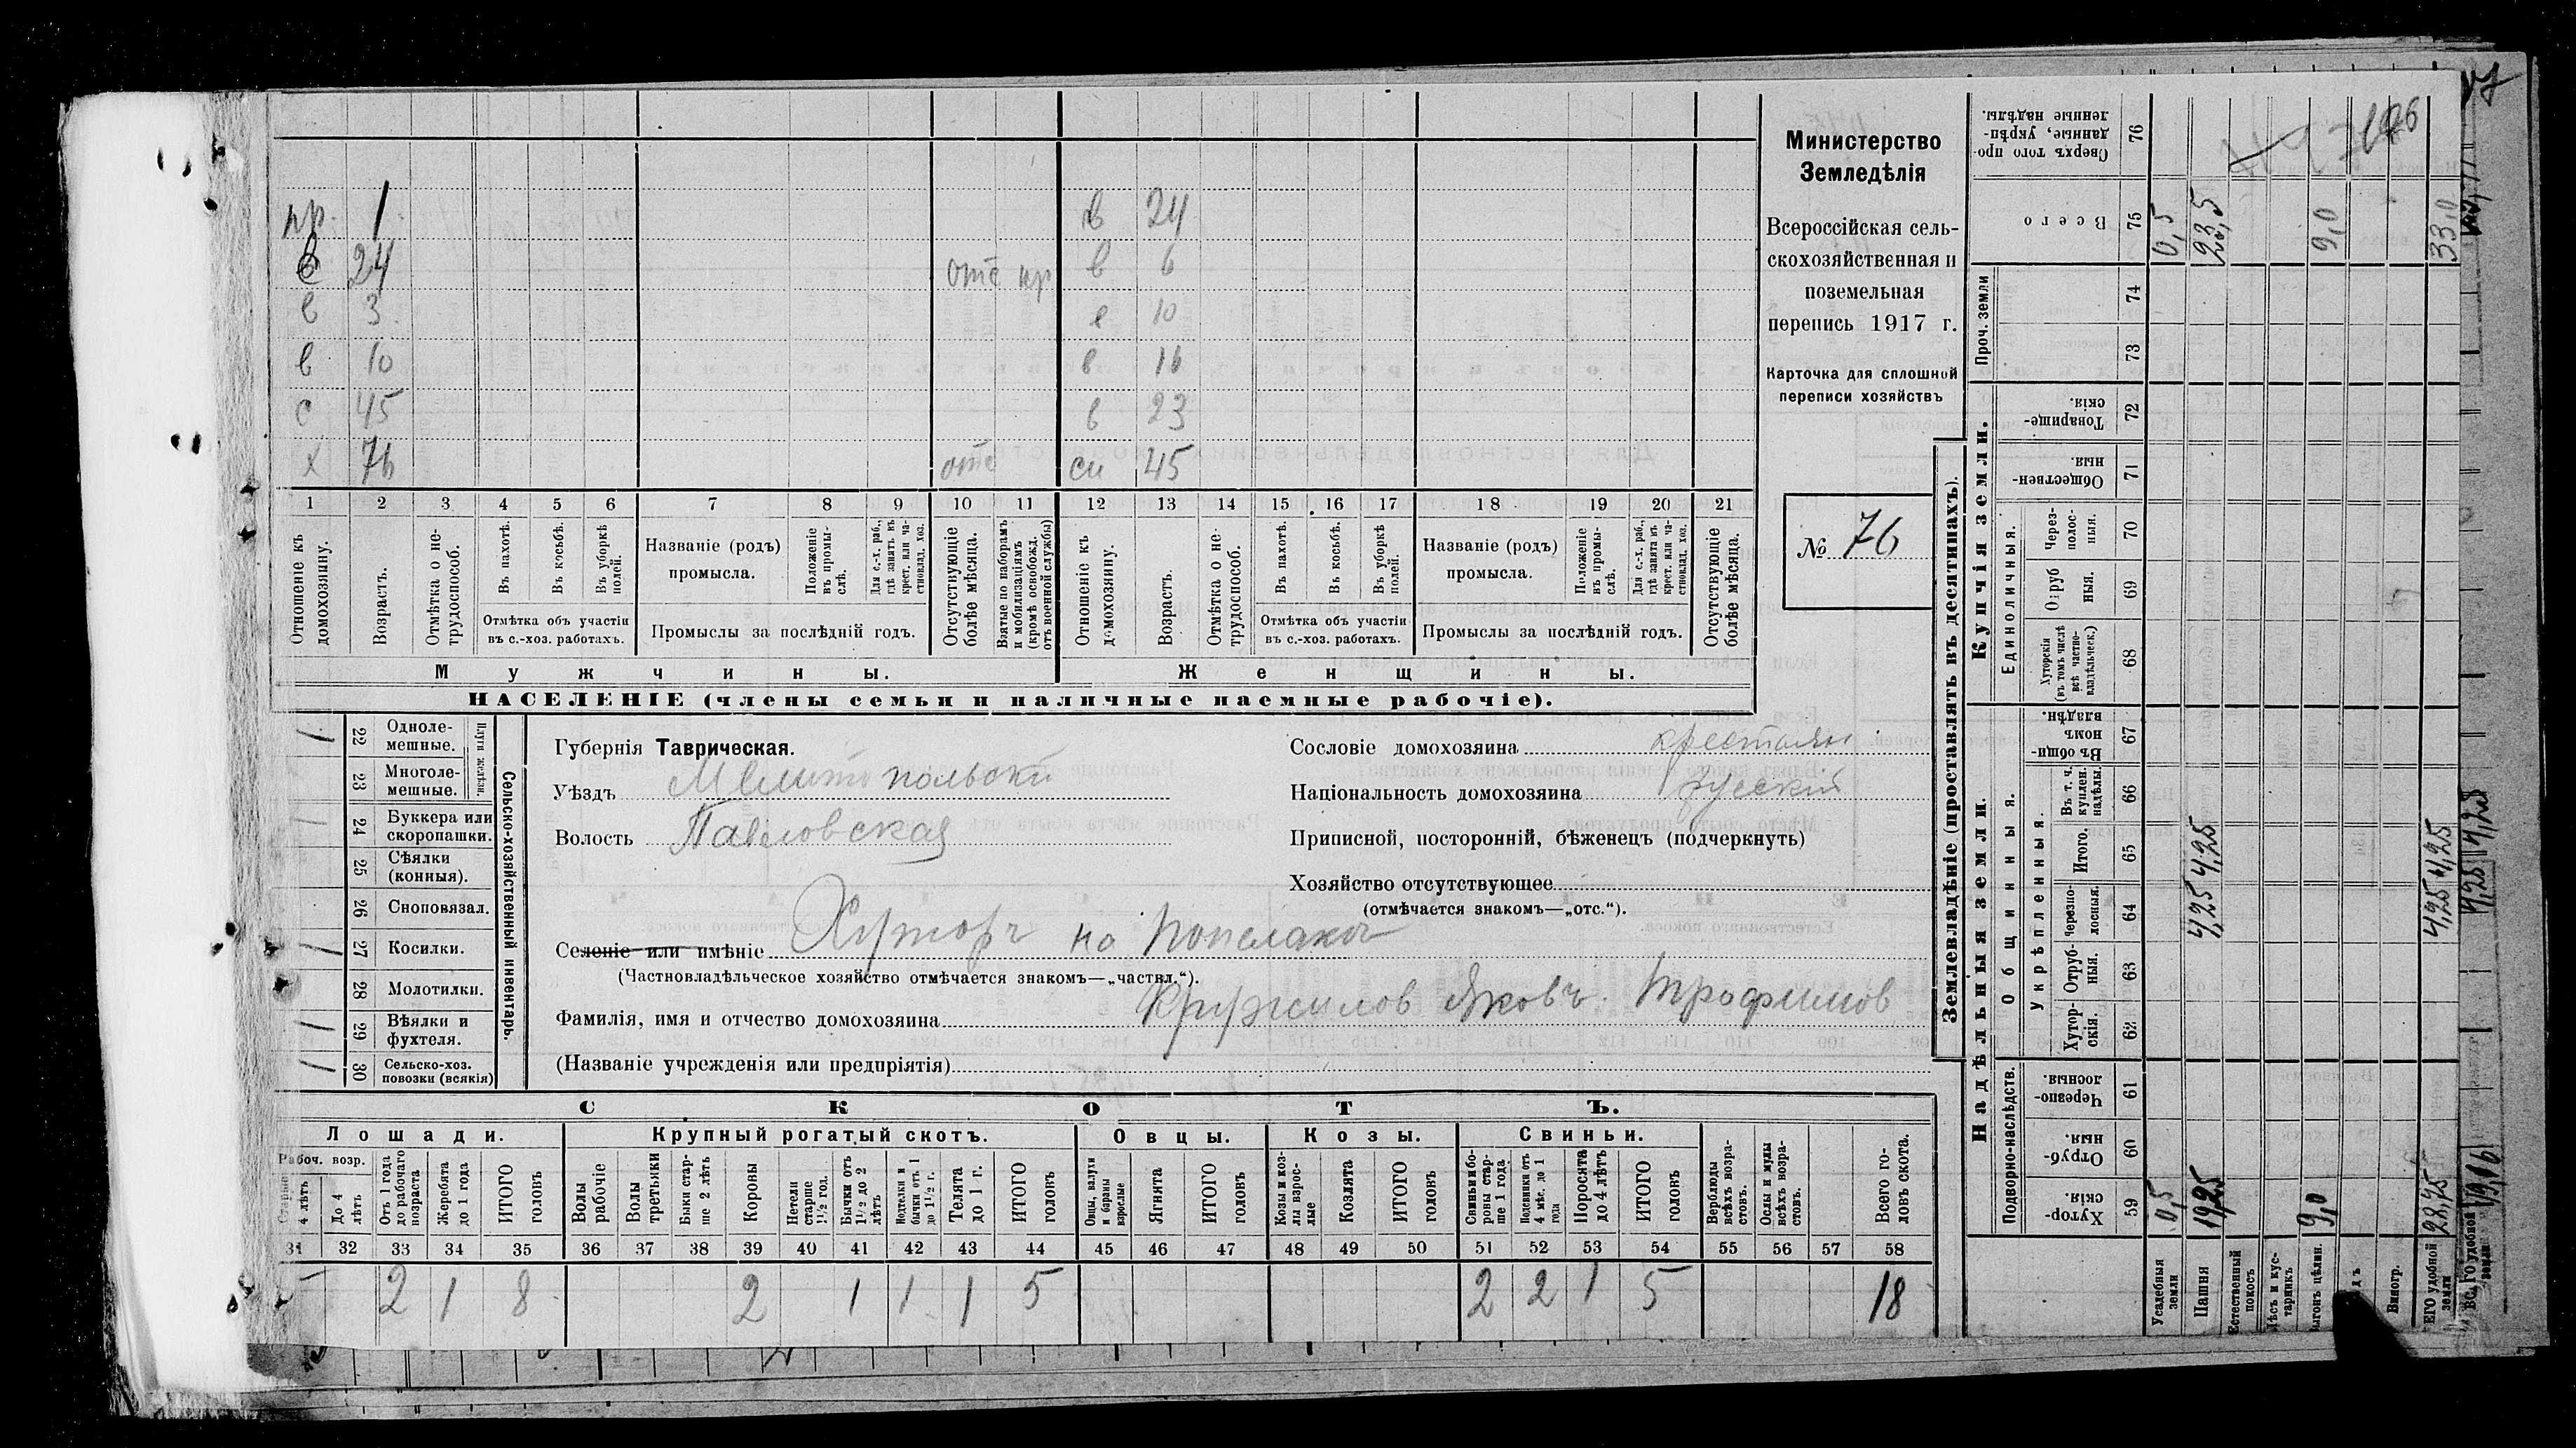 пр. 1 в 24
в 24 отс пр в 6
в 3 е 10
в 10 в 16
с 45 в 23
х 76 отс сн 45
1 2 3 4 5 6 7 8 9 10 11 12 13 14 15 16 17 18 19 20 21
Отношеніе къ домохозяину.
Возрастъ.
Отмѣтка о не-трудоспособ.
Въ пахотѣ.
Въ косьбѣ.
Въ уборкѣ полей.
Отмѣтка объ участіи
въ с.-хоз. работахъ.
Названіе (родъ)
промысла.
Положеніе въ промы-слѣ.
Для с.-х. раб., гдѣ занятъ въ крест. или ча-стновлад. хоз.
Промыслы за послѣдній годъ.
Отсутствующіе болѣе мѣсяца.
Взятые по наборамъ и мобилизаціямъ (кромѣ освобожд. отъ военной службы)
Отношеніе къ домохозяину.
Возрастъ.
Отмѣтка о не-трудоспособ.
Въ пахотѣ.
Въ косьбѣ.
Въ уборкѣ полей.
Отмѣтка объ участіи
въ с.-хоз. работахъ.
Названіе (родъ)
промысла.
Положеніе въ промы-слѣ.
Для с.-х. раб., гдѣ занята въ крест. или ча-стновлад. хоз.
Промыслы за послѣдній годъ.
Отсутствующіе болѣе мѣсяца.
Мужчины. Женщины.
НАСЕЛЕНІЕ (члены семьи и наличные наемные рабочіе).
Министерство
Земледѣлія
Всероссійская сель-
скохозяйственная и
поземельная
перепись 1917 г.
Карточка для сплошной
переписи хозяйствъ
№ 76
Сельско-хозяйственный инвентарь.
Плуги желѣзн.
1 22 Одноле-мешные.
23 Многоле-мешные.
24 Буккера или скоропашки.
25 Сѣялки (конныя).
26 Сноповязал.
1 27 Косилки.
28 Молотилки.
1 29 Вѣялки и фухтеля.
1 30 Сельско-хоз. повозки (всякія)
Губернія Таврическая.
Уѣздъ Мелитопольски
Волость Павловская
Селеніе или имѣніе Хуторъ на
(Частновладѣльческое хозяйство отмѣчается знакомъ—„частвл.“).
Фамилія, имя и отчество домохозяина Кружилов Яковъ Трофимов
(Названіе учрежденія или предпріятія)
Сословіе домохозяина крестьян
Національность домохозяина русскій
Приписной, посторонній, бѣженецъ (подчеркнуть)
Хозяйство отсутствующее
(отмѣчается знакомъ—„отс.“).
СКОТЪ.
Лошади. Крупный рогатый скотъ. Овцы. Козы. Свиньи.
Рабоч. возр.
Старше 4 лѣтъ
До 4 лѣтъ
Отъ 1 года до рабочаго возраста
Жеребята до 1 года
ИТОГО головъ
Волы рабочіе
Волы третьяки
Быки стар-ше 2 лѣтъ
Коровы
Нетели старше 1½ год.
Бычки отъ 1½ до 2 лѣтъ
Подтелки и бычки отъ 1 до 1½ г.
Телята до 1 г.
ИТОГО головъ
Овцы, валухи и бараны взрослые
Ягнята
ИТОГО головъ
Козы и коз-лы взрос-лые
Козлята
ИТОГО головъ
Свиньи и бо-ровы стар-ше 1 года
Подсвинки отъ 4 мѣс. до 1 года
Поросята до 4 лѣтъ
ИТОГО головъ
Верблюды всѣхъ возра-стовъ.
Ослы и мулы всѣхъ возра-стовъ.
Всего го-ловъ скота.
31 32 33 34 35 36 37 38 39 40 41 42 43 44 45 46 47 48 49 50 51 52 53 54 55 56 57 58
5 2 1 8 2 1 1 1 5 2 2 1 5 18
Землевладѣніе (проставлять въ десятинахъ).
Купчія земли.
Надѣльныя земли.
Проч. земли
Единоличныя.
Общинныя.
Укрѣпленныя.
Подворно-наслѣдств.
Сверхъ того про-данные, укрѣп-ленные надѣлы. 76
Всего 75
74
73
Товарище-скія. 72
Обществен-ныя. 71
Через-полос-ныя. 70
Отруб-ныя. 69
Хуторскія (въ томъ числѣ всѣ частно-владѣльческ.) 68
Въ общи-номъ владѣн. 67
Въ т. ч. куплен. надѣлы. 66
Итого. 65
Черезпо-лосныя. 64
Отруб-ныя. 63
Хутор-скія. 62
Черезпо-лосныя. 61
Отруб-ныя. 60
Хутор-скія. 59
Усадебныя земли 0,5 0,5
Пашня 19,25 4,25 4,25 23,5
Естественный покосъ
Лѣсъ и кус-тарникъ
Выгонъ цѣлин. 9,0 9,0
Виногр.
ЕГО удобной земли 28,75 4,25 4,25 33,0
ВСЕГО удобной земли